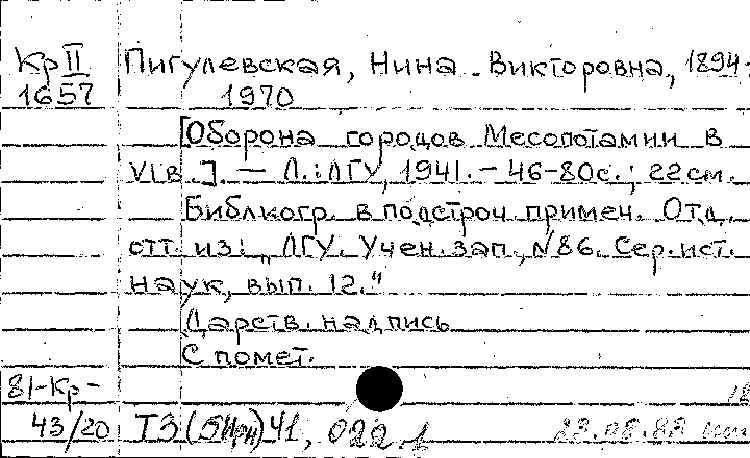 Кр II Пигулевская, Нина Викторовна, 1894-
1657 1970
[Оборона городов Месопотамии в
VI в.]. — Л.: ЛГУ, 1941. - 46-80с.; 22см.
Библиогр. в подстроч. примеч. Отд.
отт. из: „ЛГУ. Учен. зап., №86. Сер. ист.
наук, вып. 12."
Дарств. надпись
С помет.
81-Кр- 18
43/20 Т3(5Ирн)41, 022.1 23.08.83